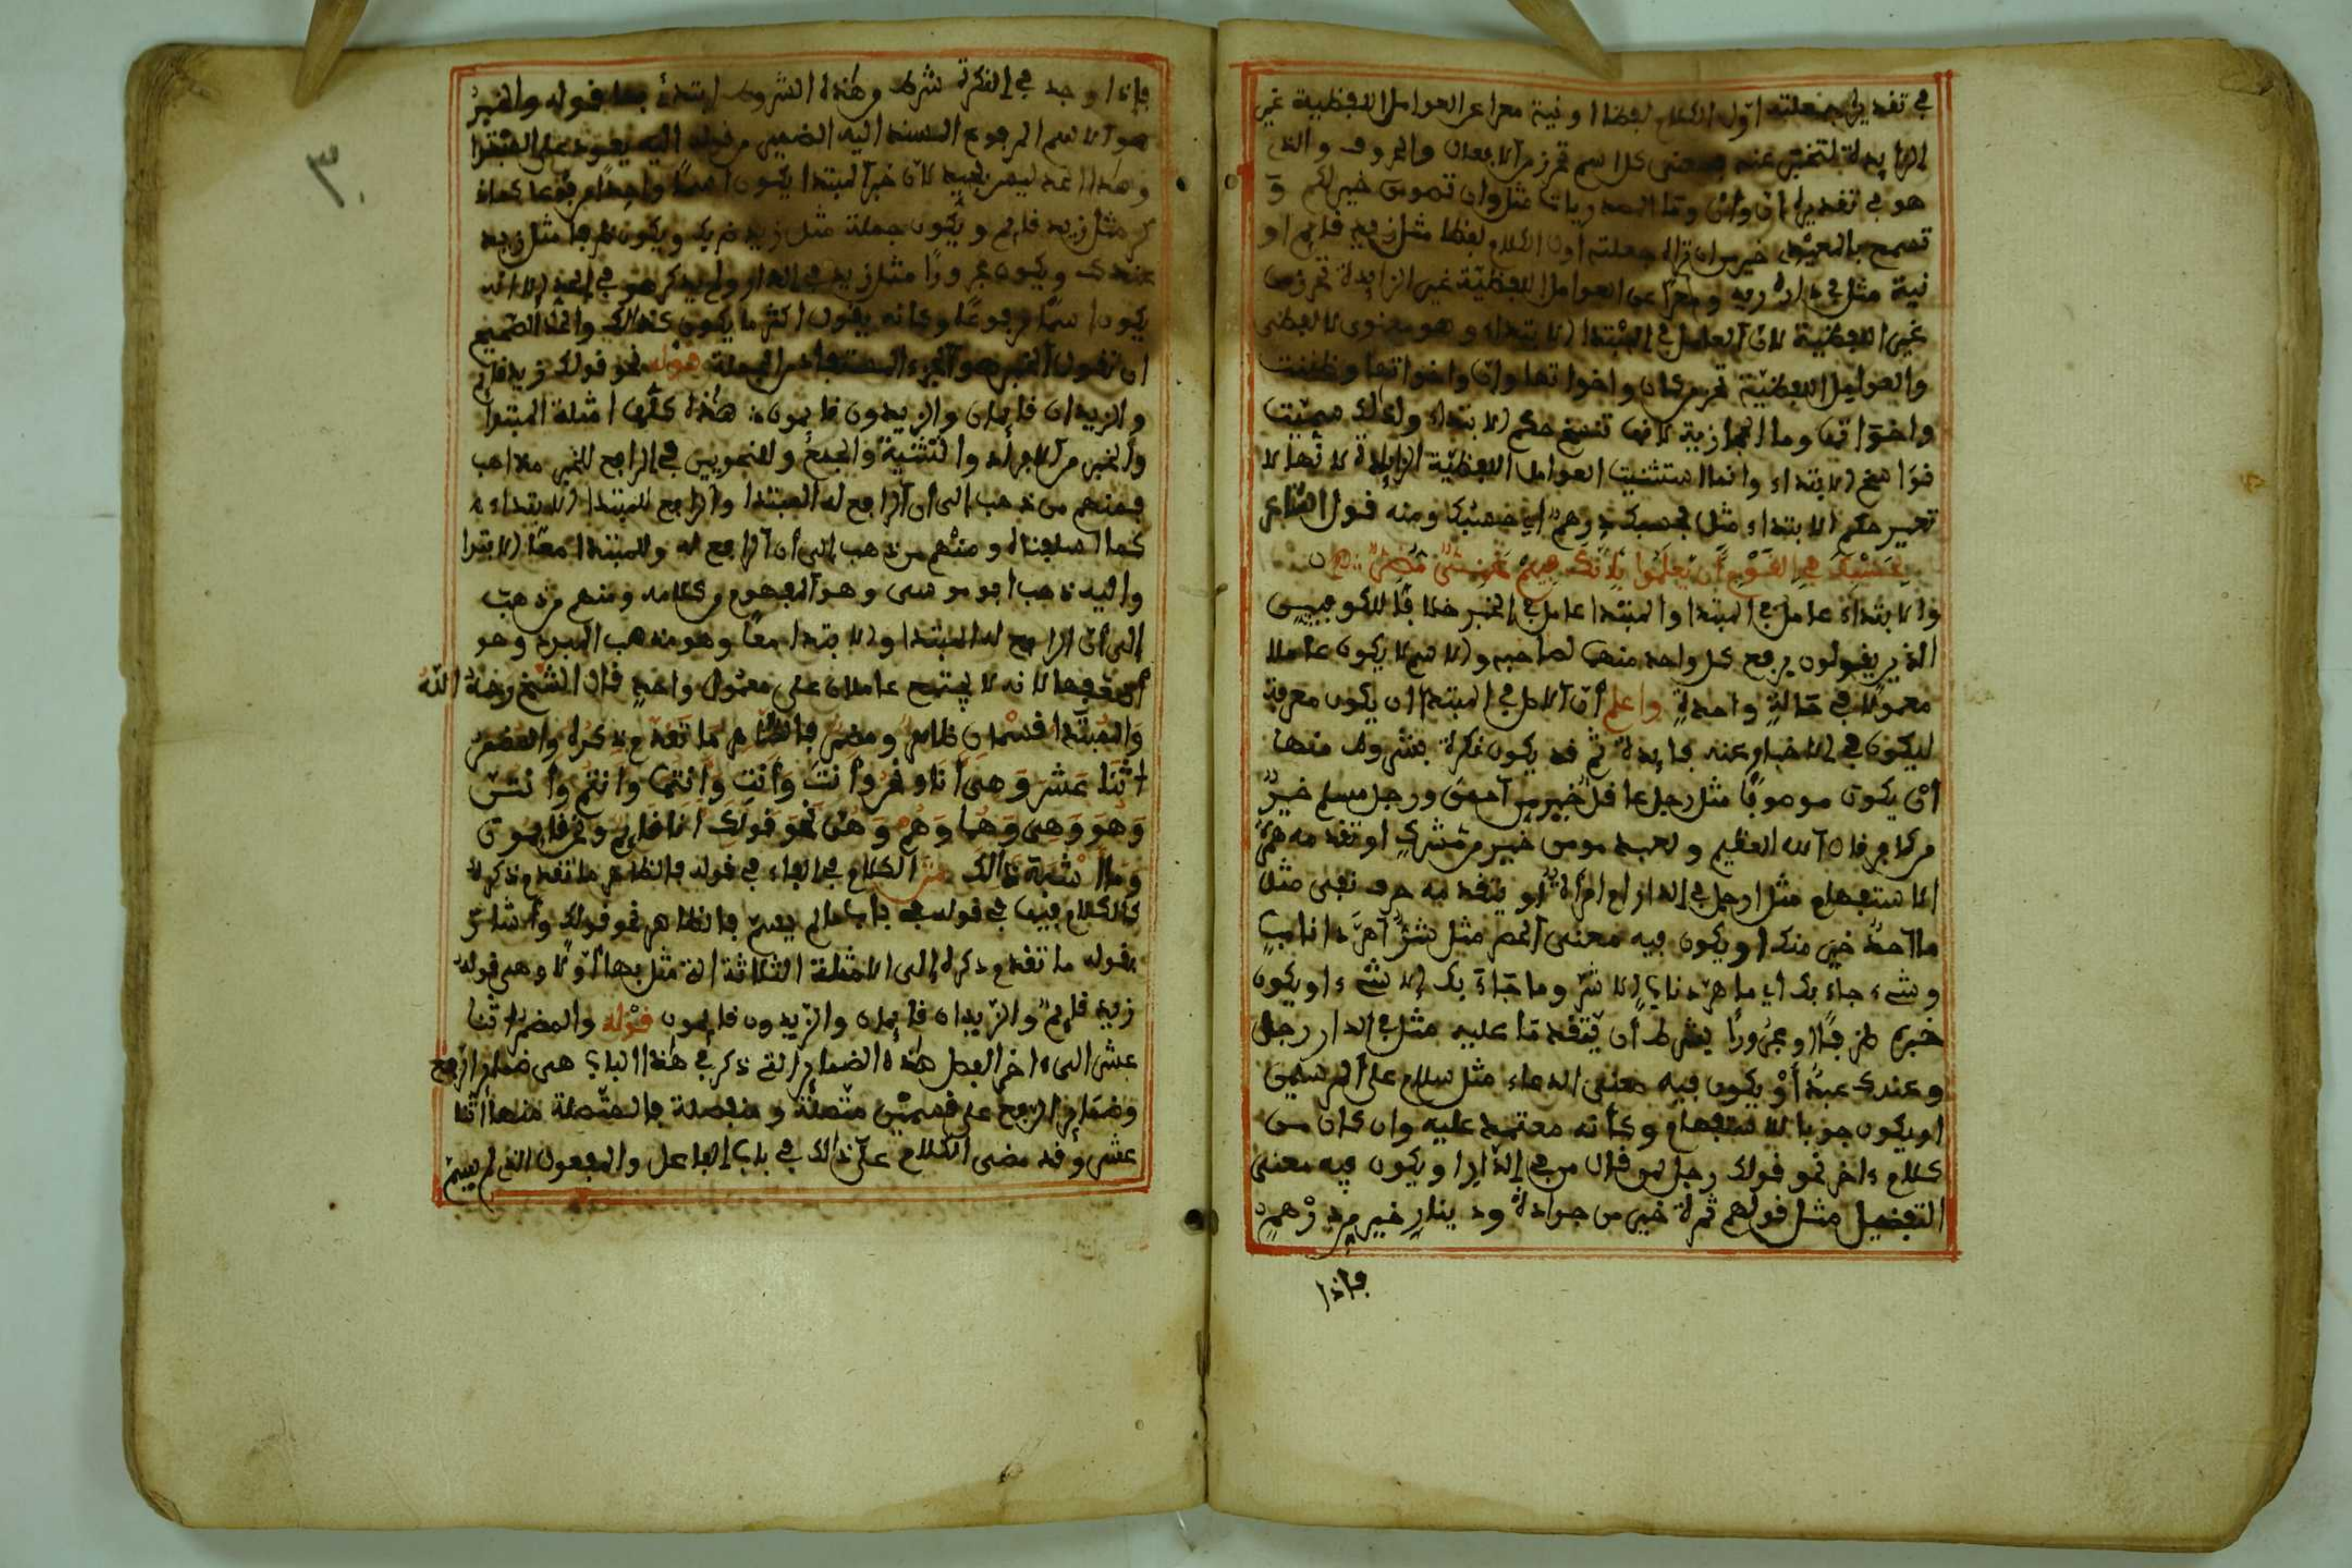 في تقديره جعلته اول الكلام لفظا او نية معرا عن العوامل اللفظية غير
الزايدة لتخبر عنه فمعنى كل اسم تحرز من الافعال والحروف والذي
هو في تقديره ان وأن وما المصدريات مثل وان تصوموا خير لكم و
تسمع بالمعيدي خير من ان تراه جعلته اول الكلام لفظا مثل زيد قايم او
نية مثل في داره زيد ومعرا عن العوامل اللفظية غير الزايدة تحرز من
غير اللفظية لان العامل في المبتدا الابتداء وهو معنوى لا لفظى
والعوامل اللفظية تحرز من كان واخواتها وان واخواتها وظننت
واخواتها وما الحجازية لانها تنسخ حكم الابتداء ولذلك سميت
نواسخ الابتداء وانما استثنيت العوامل اللفظية الزايدة لانها لا
تغير حكم الابتداء مثل بحسبك درهم اي حسبك ومنه قول الشاعر
بحسبك في القوم أن يعلموا بأنك فيهم غني مضر
والابتداء عامل في المبتدا والمبتدا عامل في الخبر خلافا للكوفيين
الذين يقولون يرفع كل واحد منهما لصاحبه والاسم لا يكون عاملا
معمولا في حالة واحدة واعلم أن الاصل في المبتدا ان يكون معرفة
ليكون في الاخبار عنه فايدة ثم قد يكون نكرة بشروط منها
أن يكون موصوفا مثل رجل عاقل خير من احمق ورجل مسلم خير
من كافر قال الله العظيم ولعبد مومن خير من مشرك او تقدمه همزة
الاستفهام مثل ارجل في الدار ام امرأة او يتقدمه حرف نفى مثل
ما احد خير منك او يكون فيه معنى الحصر مثل شر اهر ذا ناب
وشيء جاء بك اي ما اهر ذا ناب الا شر وما جاء بك الا شيء او يكون
خبره ظرفا او مجرورا بشرط أن يتقدما عليه مثل في الدار رجل
وعندك عبد أو يكون فيه معنى الدعاء مثل سلام على المرسلين
او يكون جوبا للاستفهام وكأنه معتمد عليه وان كان من
كلام ءاخر نحو قولك رجل لمن قال من في الدار او يكون فيه معنى
التفضيل مثل قولهم تمرة خير من جرادة ودينار خير من درهم
فاذا
فإذا وجد في النكرة شرط من هذه الشروط ابتدئ بها قوله والخبر
هو الاسم المرفوع المسند اليه الضمير من قوله اليه يعود على المبتدا
وهذا الحد ليس بجيد لان خبر المبتدا يكون اسما واحدا مرفوعا كما ذ
كر مثل زيد قايم ويكون جملة مثل زيد ضربك ويكون ظرفا مثل زيد
عندك ويكون مجرورا مثل زيد في الدار ولم يذكر هو في الحد الا انه
يكون اسما مرفوعا وكأنه يقول اكثر ما يكون كذالك وانما الصحيح
ان تقول الخبر هو الجزء المستفاد من الجملة قوله نحو قولك زيد قايم
والزيدان قايمان والزيدون قايمون هذه كلها امثلة المبتدا
والخبر من الافراد والتثنية والجمع وللنحويين في الرافع للخبر مذاهب
فمنهم من ذهب الى ان الرافع له المبتدا والرافع للمبتدا الابتداء
كما اسلفناه ومنهم من ذهب الى أن الرافع له وللمبتدا معا الابتدا
واليه ذهب ابو موسى وهو المفهوم من كلامه ومنهم من ذهب
الى أن الرافع له المبتدا والابتدا معا وهو مذهب المبرد وهو
أضعفها لانه لا يجتمع عاملان على معمول واحد قال الشيخ رحمه الله
والمبتدا قسمان ظاهر ومضمر فالظاهر ما تقدم ذكره والمضمر
اثنا عشر وهي أنا ونحن وأنت وأنت وأنتما وأنتم وأنتن
وهو وهي وهما وهم وهن نحو قولك انا قايم ونحن قايمون
وما اشبه ذالك الكلام في الفاء في قوله فالظاهر ما تقدم ذكره
كالكلام فيها في قوله في باب ما لم يسم فالظاهر نحو قولك وأشار
بقوله ما تقدم ذكره إلى الامثلة الثلاثة التي مثل بها أولا وهي قوله
زيد قايم والزيدان قايمان والزيدون قايمون قوله والمضمر اثنا
عشر الى ءاخر الفصل هذه الضماير التي ذكر في هذا الباب هي ضماير الرفع
وضماير الرفع على قسمين متصلة ومنفصلة فالمتصلة منها اثنا
عشر وقد مضى الكلام على ذالك في باب الفاعل والمفعول الذي لم يسم